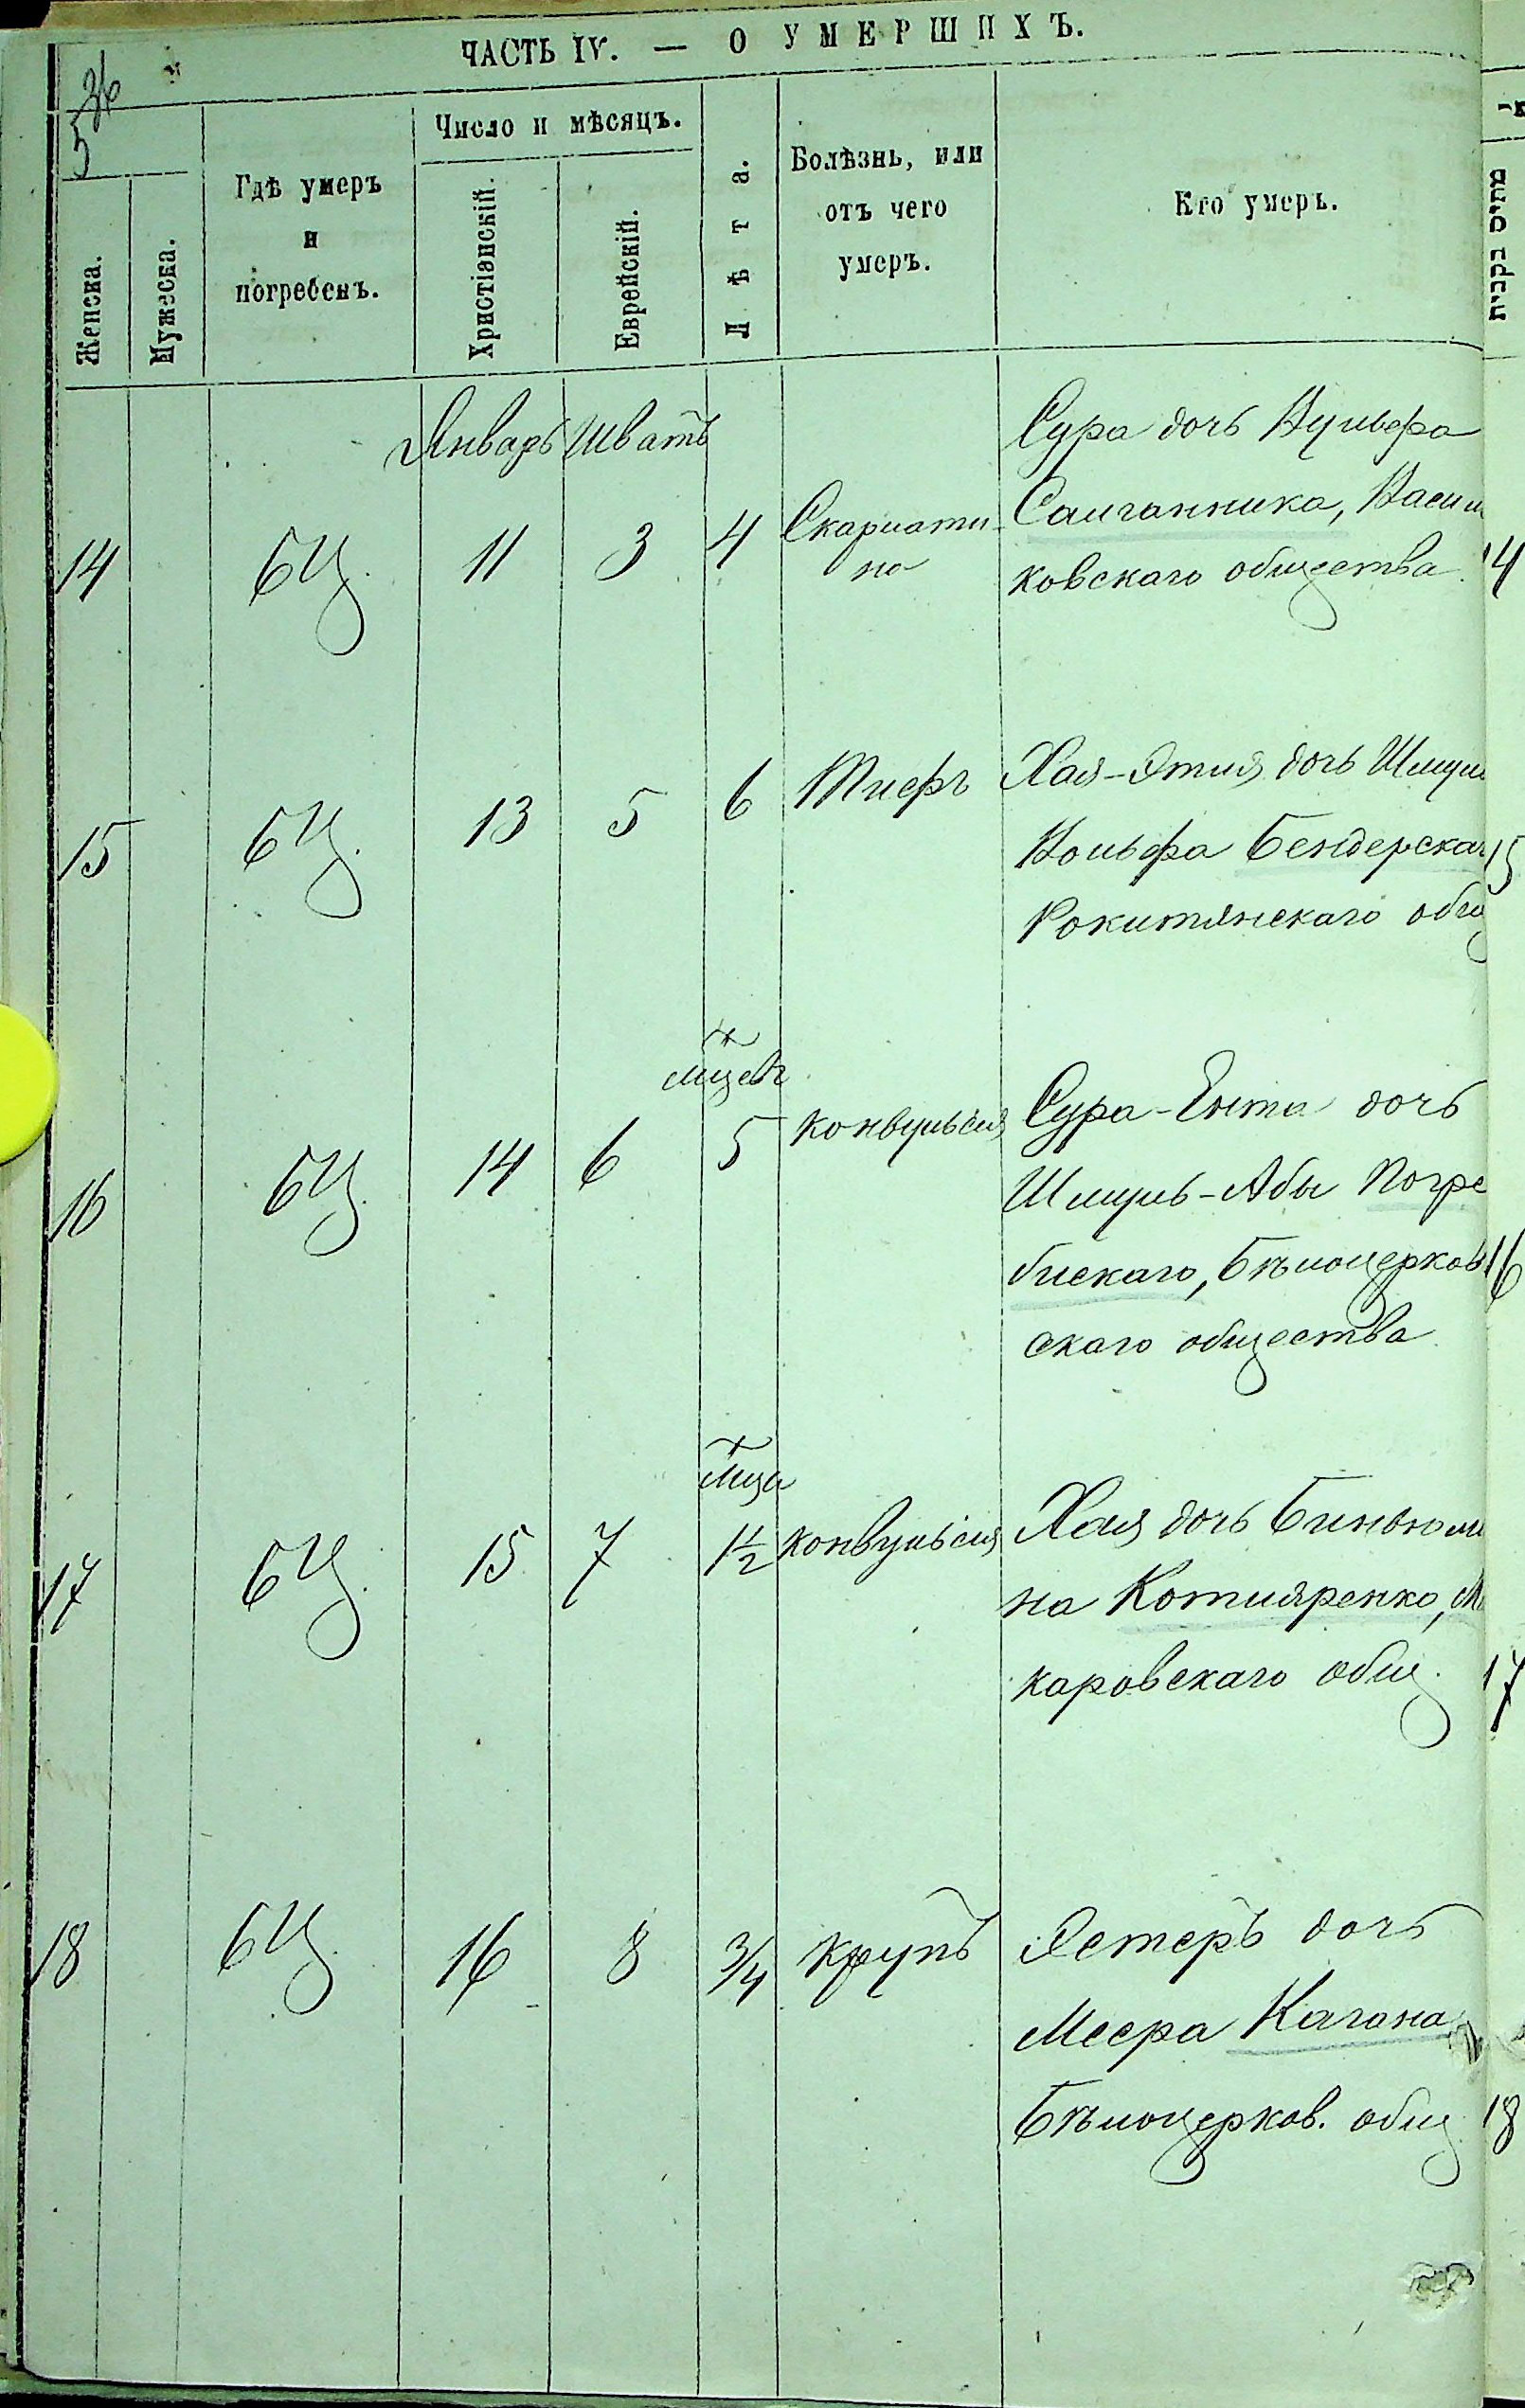 ЧАСТЬ IV. — О УМЕРШИХЪ.
36
5
Женска.
Мужеска.
Гдѣ умеръ
и
погребенъ.
Число и мѣсяцъ.
Христіанскій.
Еврейскій.
Лѣта.
Болѣзнь, или
отъ чего
умеръ.
Кто умеръ.
מתים נקבות
Январь Шватъ
Сура дочь Вульфа
14 БЦ. 11 3 4 Скарлати- Салганника, Василь
на ковскаго общества. 14
15 БЦ. 13 5 6 Тифъ Хая-Этля дочь Шмуль
Вольфа Бендерскаг 15
Рокитянскаго общ
м-цевъ
16 БЦ. 14 6 5 конвульсія Сура-Ента дочь
Шмуль-Абы Погре
бискаго, Бѣлоцерков 16
скаго общества
м-ца
17 БЦ. 15 7 1½ конвульсія Хая дочь Биньоми
на Котляренко, М
каровскаго общ. 17
18 БЦ. 16 8 3/4 крупъ Эстеръ дочь
Меера Кагана
Бѣлоцерков. общ. 18